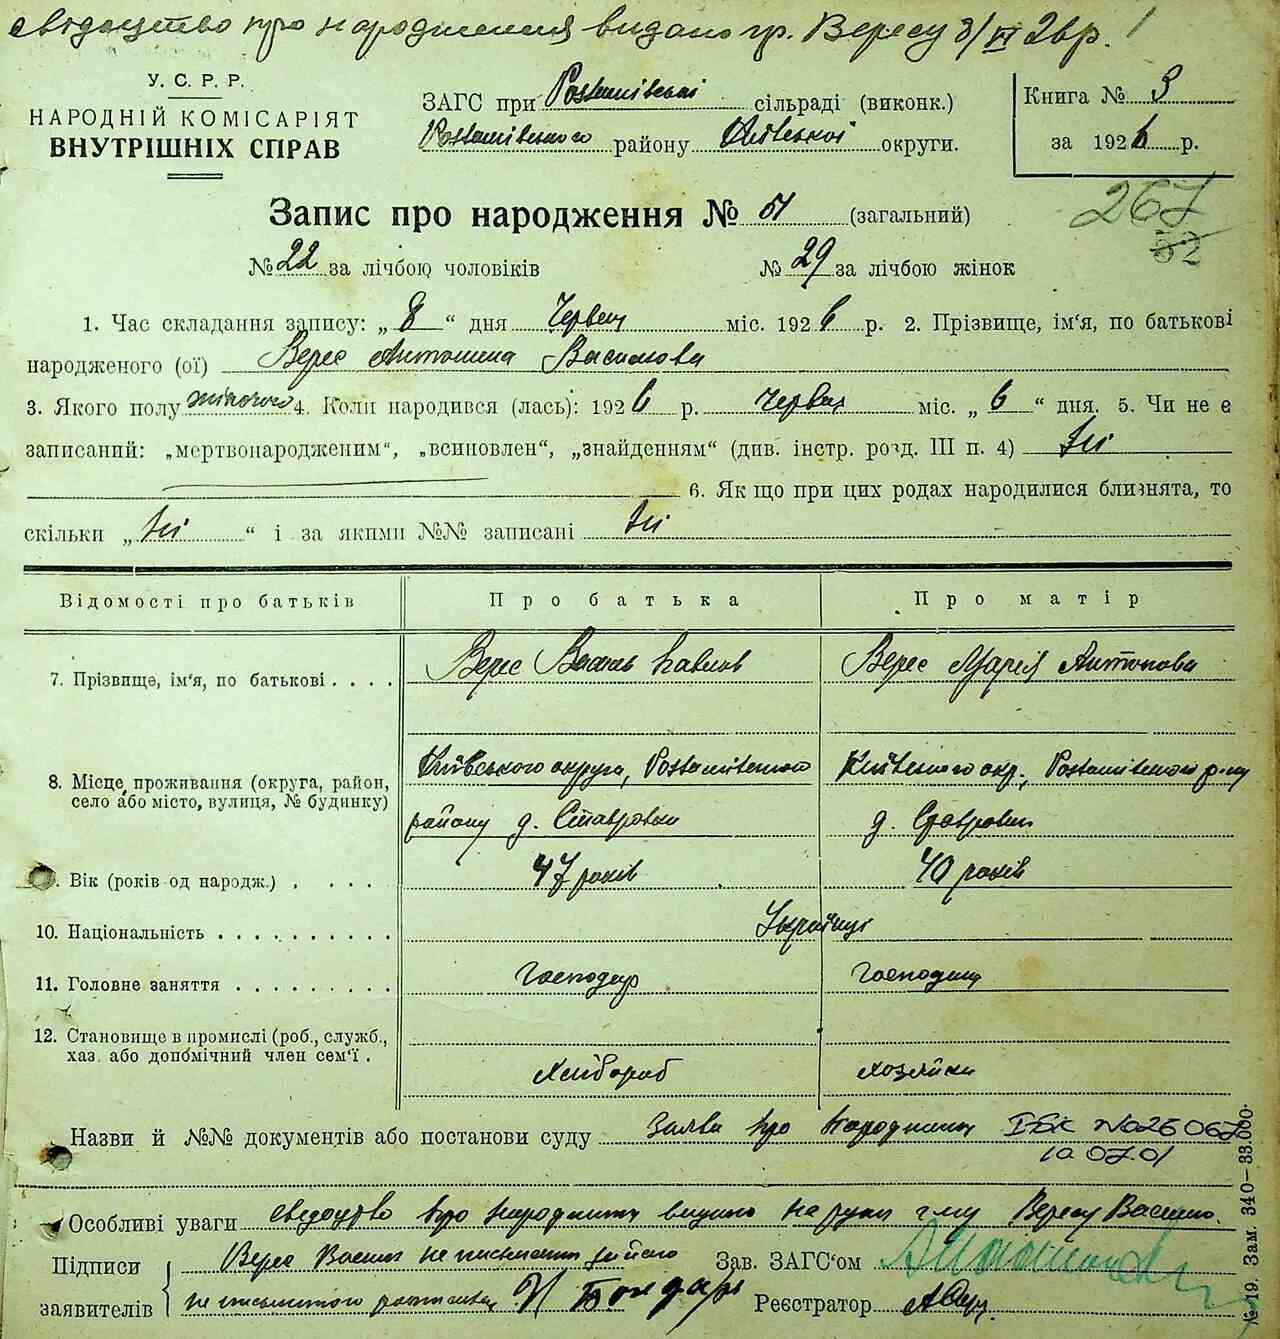 свідоцтво про народження видано гр. Вересу 8/VI 26р.
У. С. Р. Р.
НАРОДНІЙ КОМІСАРІЯТ
ВНУТРІШНІХ СПРАВ
ЗАГС при сільраді (виконк.)
району Київської округи.
Книга № 3
за 1926 р.
267
52
Запис про народження № 51 (загальний)
№ 22 за лічбою чоловіків № 29 за лічбою жінок
1. Час складання запису: „ 8 “ дня Червня міс. 1926 р. 2. Прізвище, ім‘я, по батькові
народженого (ої) Верес Антонина Василева
3. Якого полу жіночого 4. Коли народився (лась): 1926 р. червня міс. „ 6 “ дня. 5. Чи не є
записаний: „мертвонародженим“, „всиновлен“, „знайденням“ (див. інстр. розд. III п. 4) Ні
6. Як що при цих родах народилися близнята, то
скільки „ Ні “ і за якими №№ записані Ні
Відомості про батьків Про батька Про матір
7. Прізвище, ім‘я, по батькові . . . . Верес Василь Павлов Верес Марія Антонова
8. Місце проживання (округа, район,
село або місто, вулиця, № будинку)
Київського округа, Київського окр.,
району д. Ставровки д. Ставровки
. Вік (років од народж.) . . . . 47 років 40 років
10. Національність . . . . . . . . . . Українці
11. Головне заняття . . . . . . . . . Господар Господиня
12. Становище в промислі (роб., служб.,
хаз. або допомічний член сем‘ї .
Хлібороб хозяйка
Назви й №№ документів або постанови суду Заява про народження I-БК №026067
10.07.01
Особливі уваги свідоцтво про народження видано на руки г-ну Вересу Василю.
Підписи Верес Василь не письменний за його Зав. ЗАГС‘ом
заявителів не письменного росписався Бондарь Реєстратор
№ 19. Зам. 340—33.000.